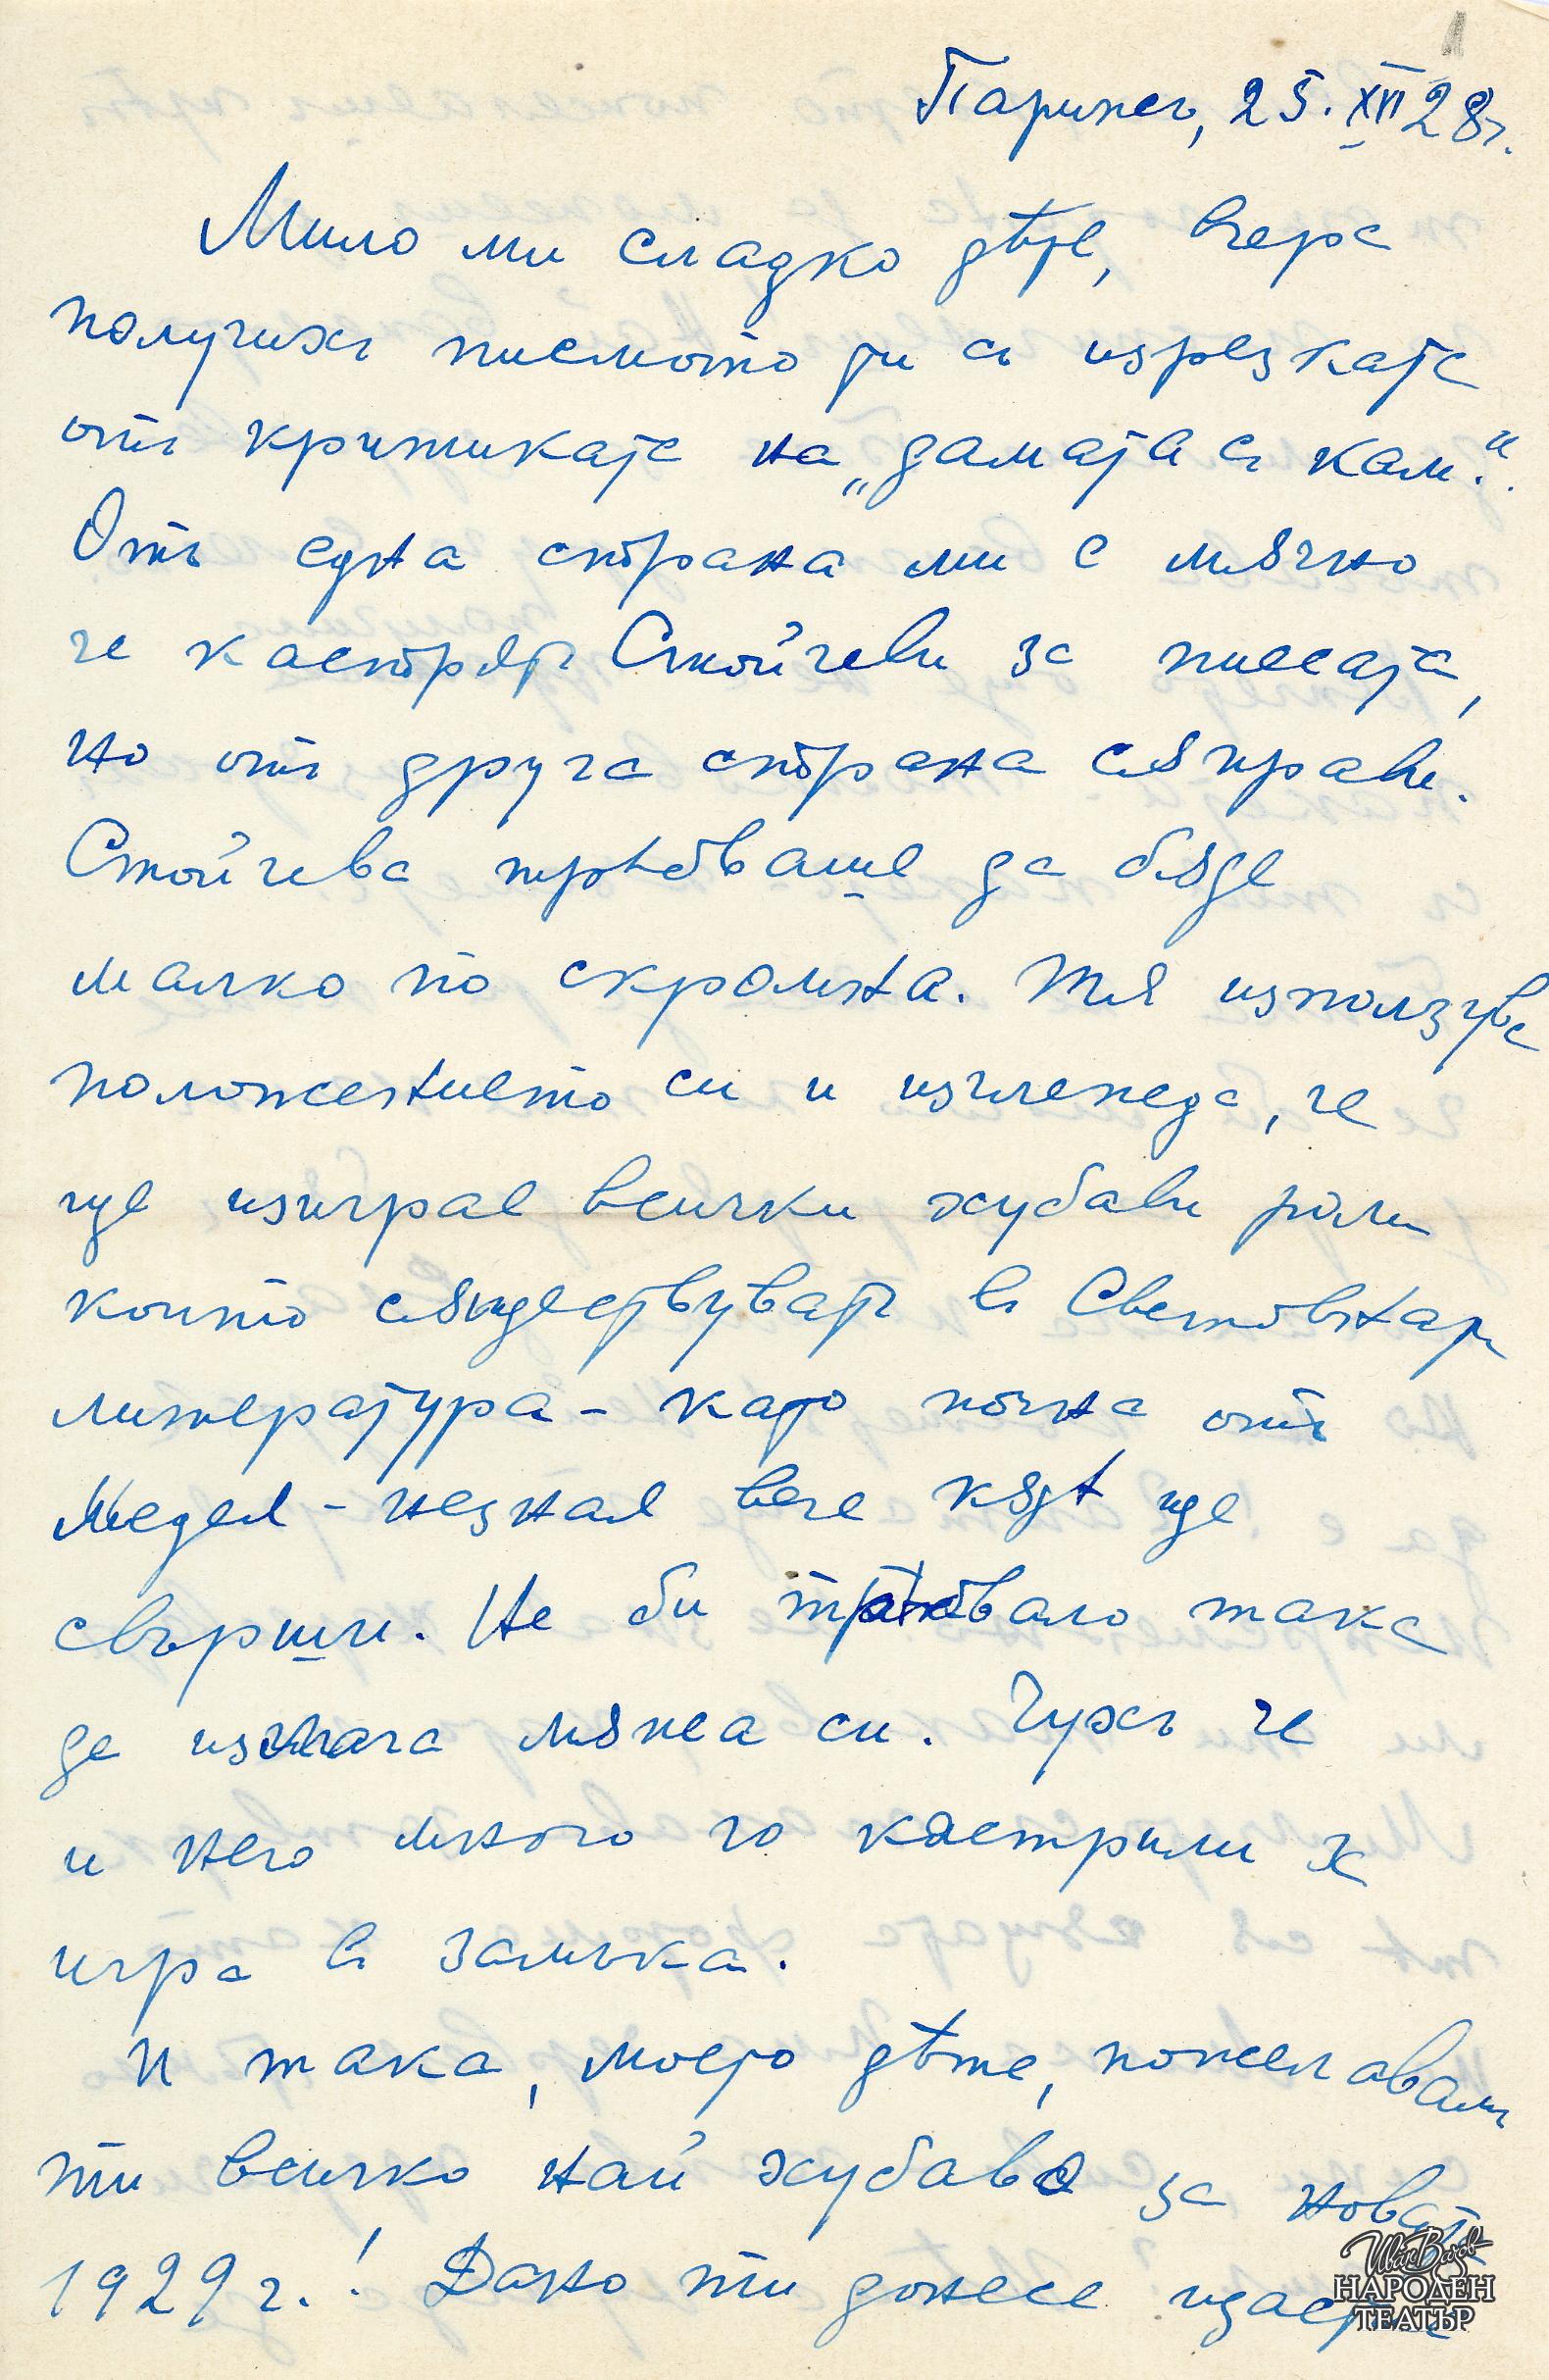 Парижъ, 25.XII 28г.
Мило ми сладко дѣте, вчера
получихъ писмото ти съ изрезката
отъ критиката на „дамата съ кам.“.
Отъ една страна ми е мѫчно
че кастрятъ Стойчеви за писата,
но отъ друга страна сѫ прави.
Стойчева трѣбваше да бѫде
малко по скромна. Тя използува
положението си и изглежда, че
ще изиграе всички хубави роли
които сѫществуватъ въ Световната
литература – като почна отъ
Медея – незная вече кѫдѣ ще
свърши. Не би трѣбвало така
да излага мѫжа си. Чухъ че
и него много го кастрили
игра въ замъка.
И така, моето дѣте, пожелавамъ
ти всичко най хубаво за новата
1929 г.! Дано ти донесе щастие
Иван Вазов
НАРОДЕН
ТЕАТЪР